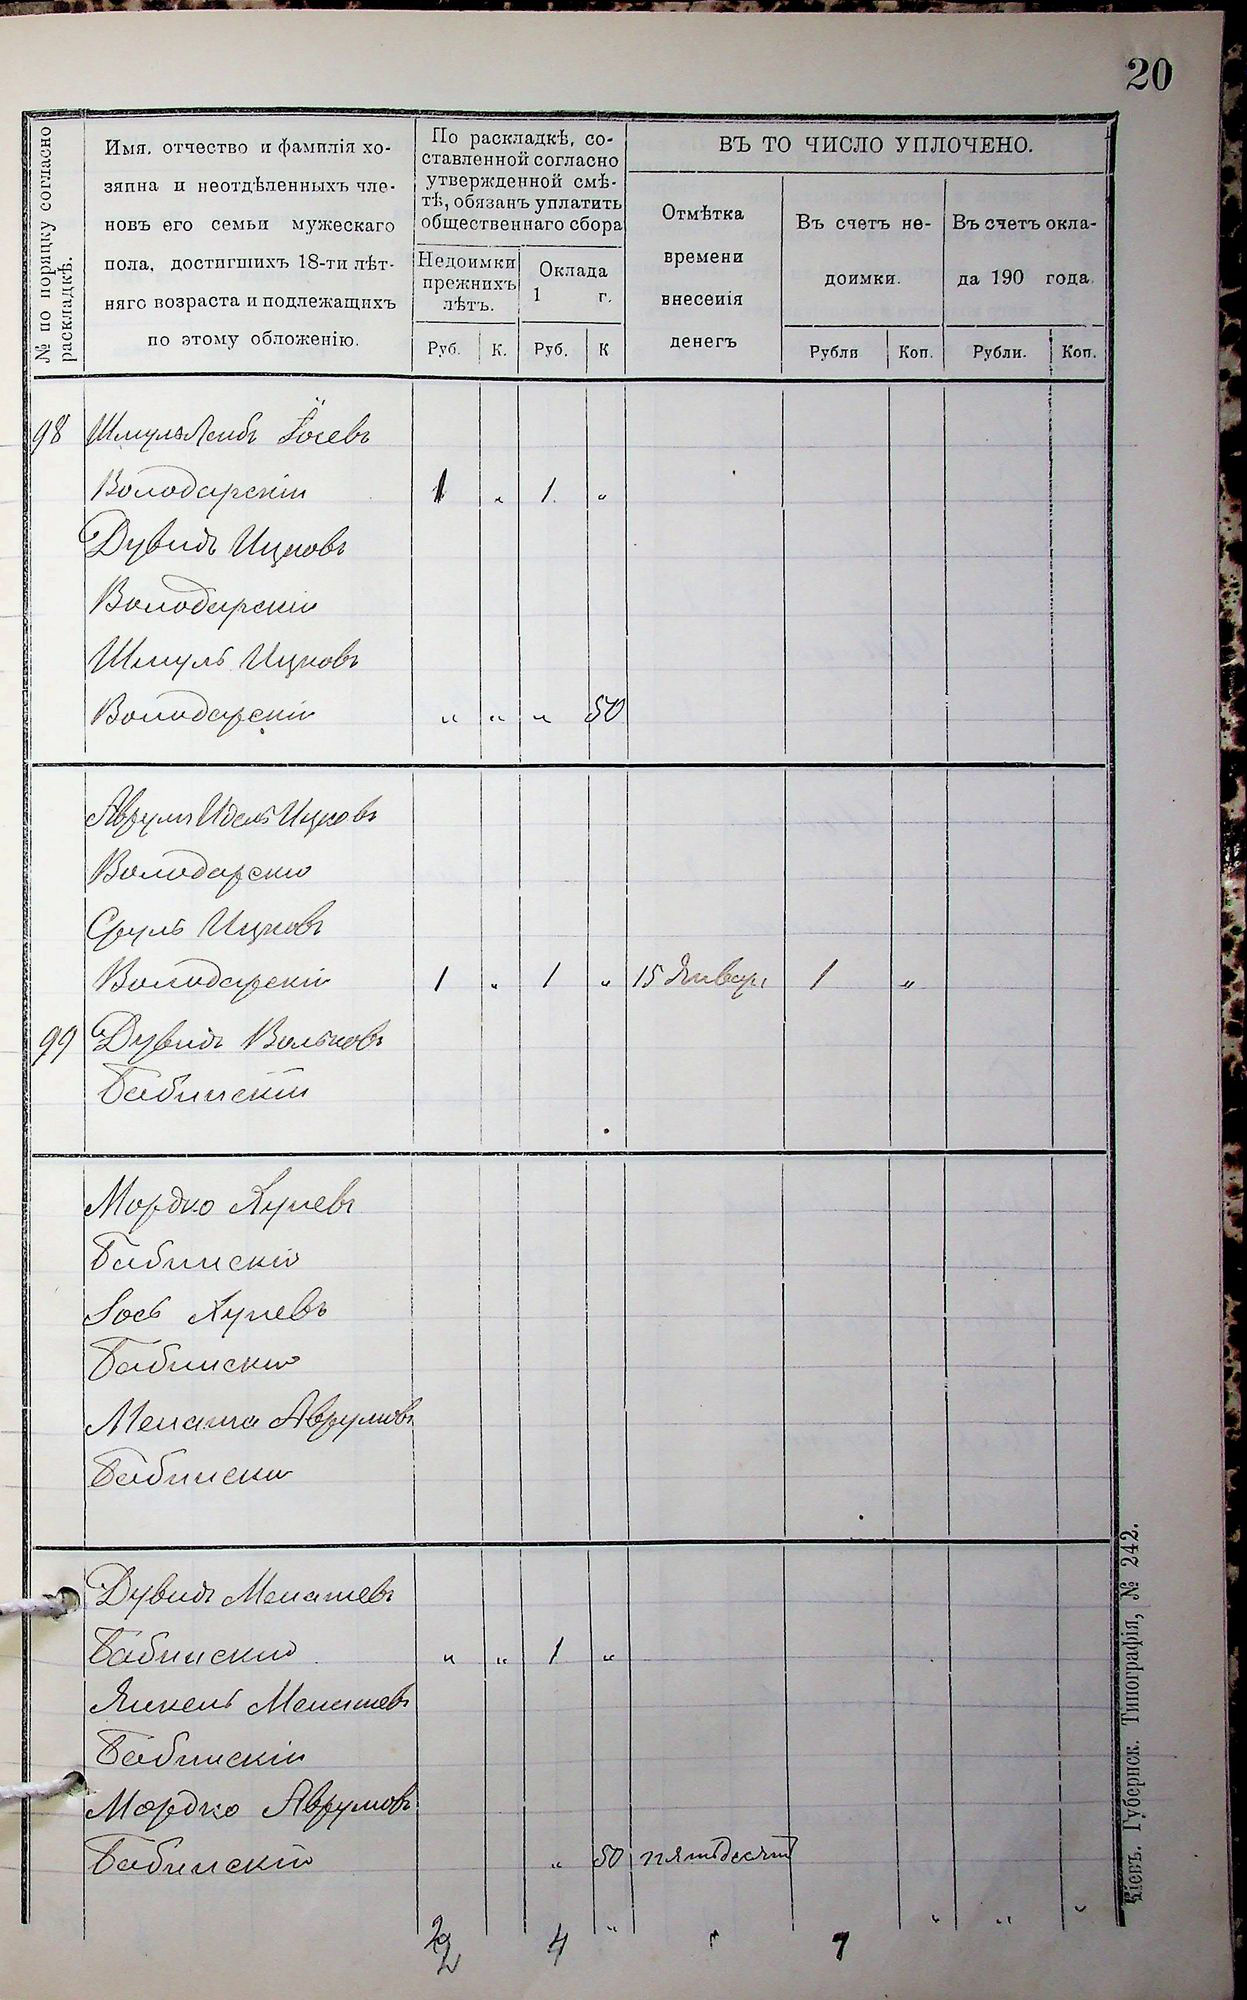 20
№ по порядку согласно
раскладкѣ.
Имя, отчество и фамилія хо-
зяина и неотдѣленныхъ чле-
новъ его семьи мужескаго
пола, достигшихъ 18-ти лѣт-
няго возраста и подлежащихъ
по этому обложенію.
По раскладкѣ, со-
ставленной согласно
утвержденной смѣ-
тѣ, обязанъ уплатить
общественнаго сбора
Недоимки
прежнихъ
лѣтъ.
Оклада
1 г.
Руб. К. Руб. К
ВЪ ТО ЧИСЛО УПЛОЧЕНО.
Отмѣтка
времени
внесенія
денегъ
Въ счетъ не-
доимки.
Рубли Коп.
Въ счетъ окла-
да 190 года.
Рубли. Коп.
98 Шмуль Лейбъ Іосевъ
Володарскій 1 " 1 "
Дувидъ Ицковъ
Володарскій
Шмуль Ицковъ
Володарскій " " " 50
Аврумъ Идель Ицковъ
Володарскій
Сруль Ицковъ
Володарскій 1 " 1 " 15 Январ 1 "
99 Дувидъ Вольковъ
Бабинскій
Мордко
Бабинскій
Іось
Бабинскій
Менаша Аврумовъ
Бабинскій
Дувидъ Менашевъ
Бабинскій " " 1 "
Янкель Менашевъ
Бабинскій
Мордко Аврумовъ
Бабинскій " 50 пятьдесят
2 4 " " " " "
Кіевъ. Губернск. Типографія, № 242.